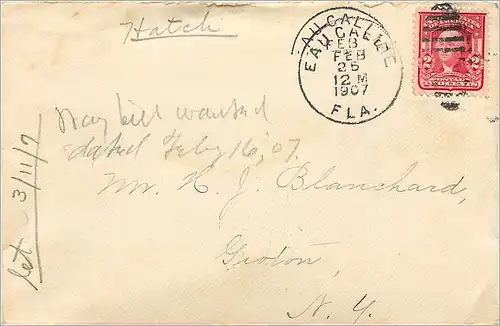 Hatch
EAU GALLIE
FEB
25
12 M
1907
FLA.
2 2
TWO CENTS
Way bill wanted
dated Feby 16, 07.
Mr. H. J. Blanchard,
Groton,
N. Y.
3/11/7